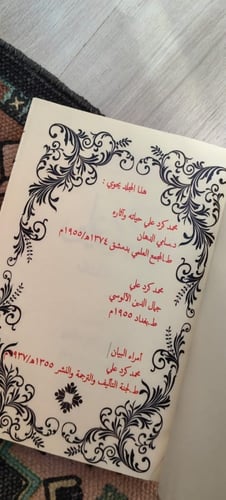 هذا المجلد يحوي :
محمد كرد علي حياته وآثاره
د.سامي الدهان
ط.المجمع العلمي بدمشق ١٣٧٤هـ/١٩٥٥م
محمد كرد علي
جمال الدين الآلوسي
ط.بغداد ١٩٥٥م
أمراء البيان
محمد كرد علي
ط.لجنة التأليف والترجمة والنشر ١٣٥٥هـ/١٩٣٧م